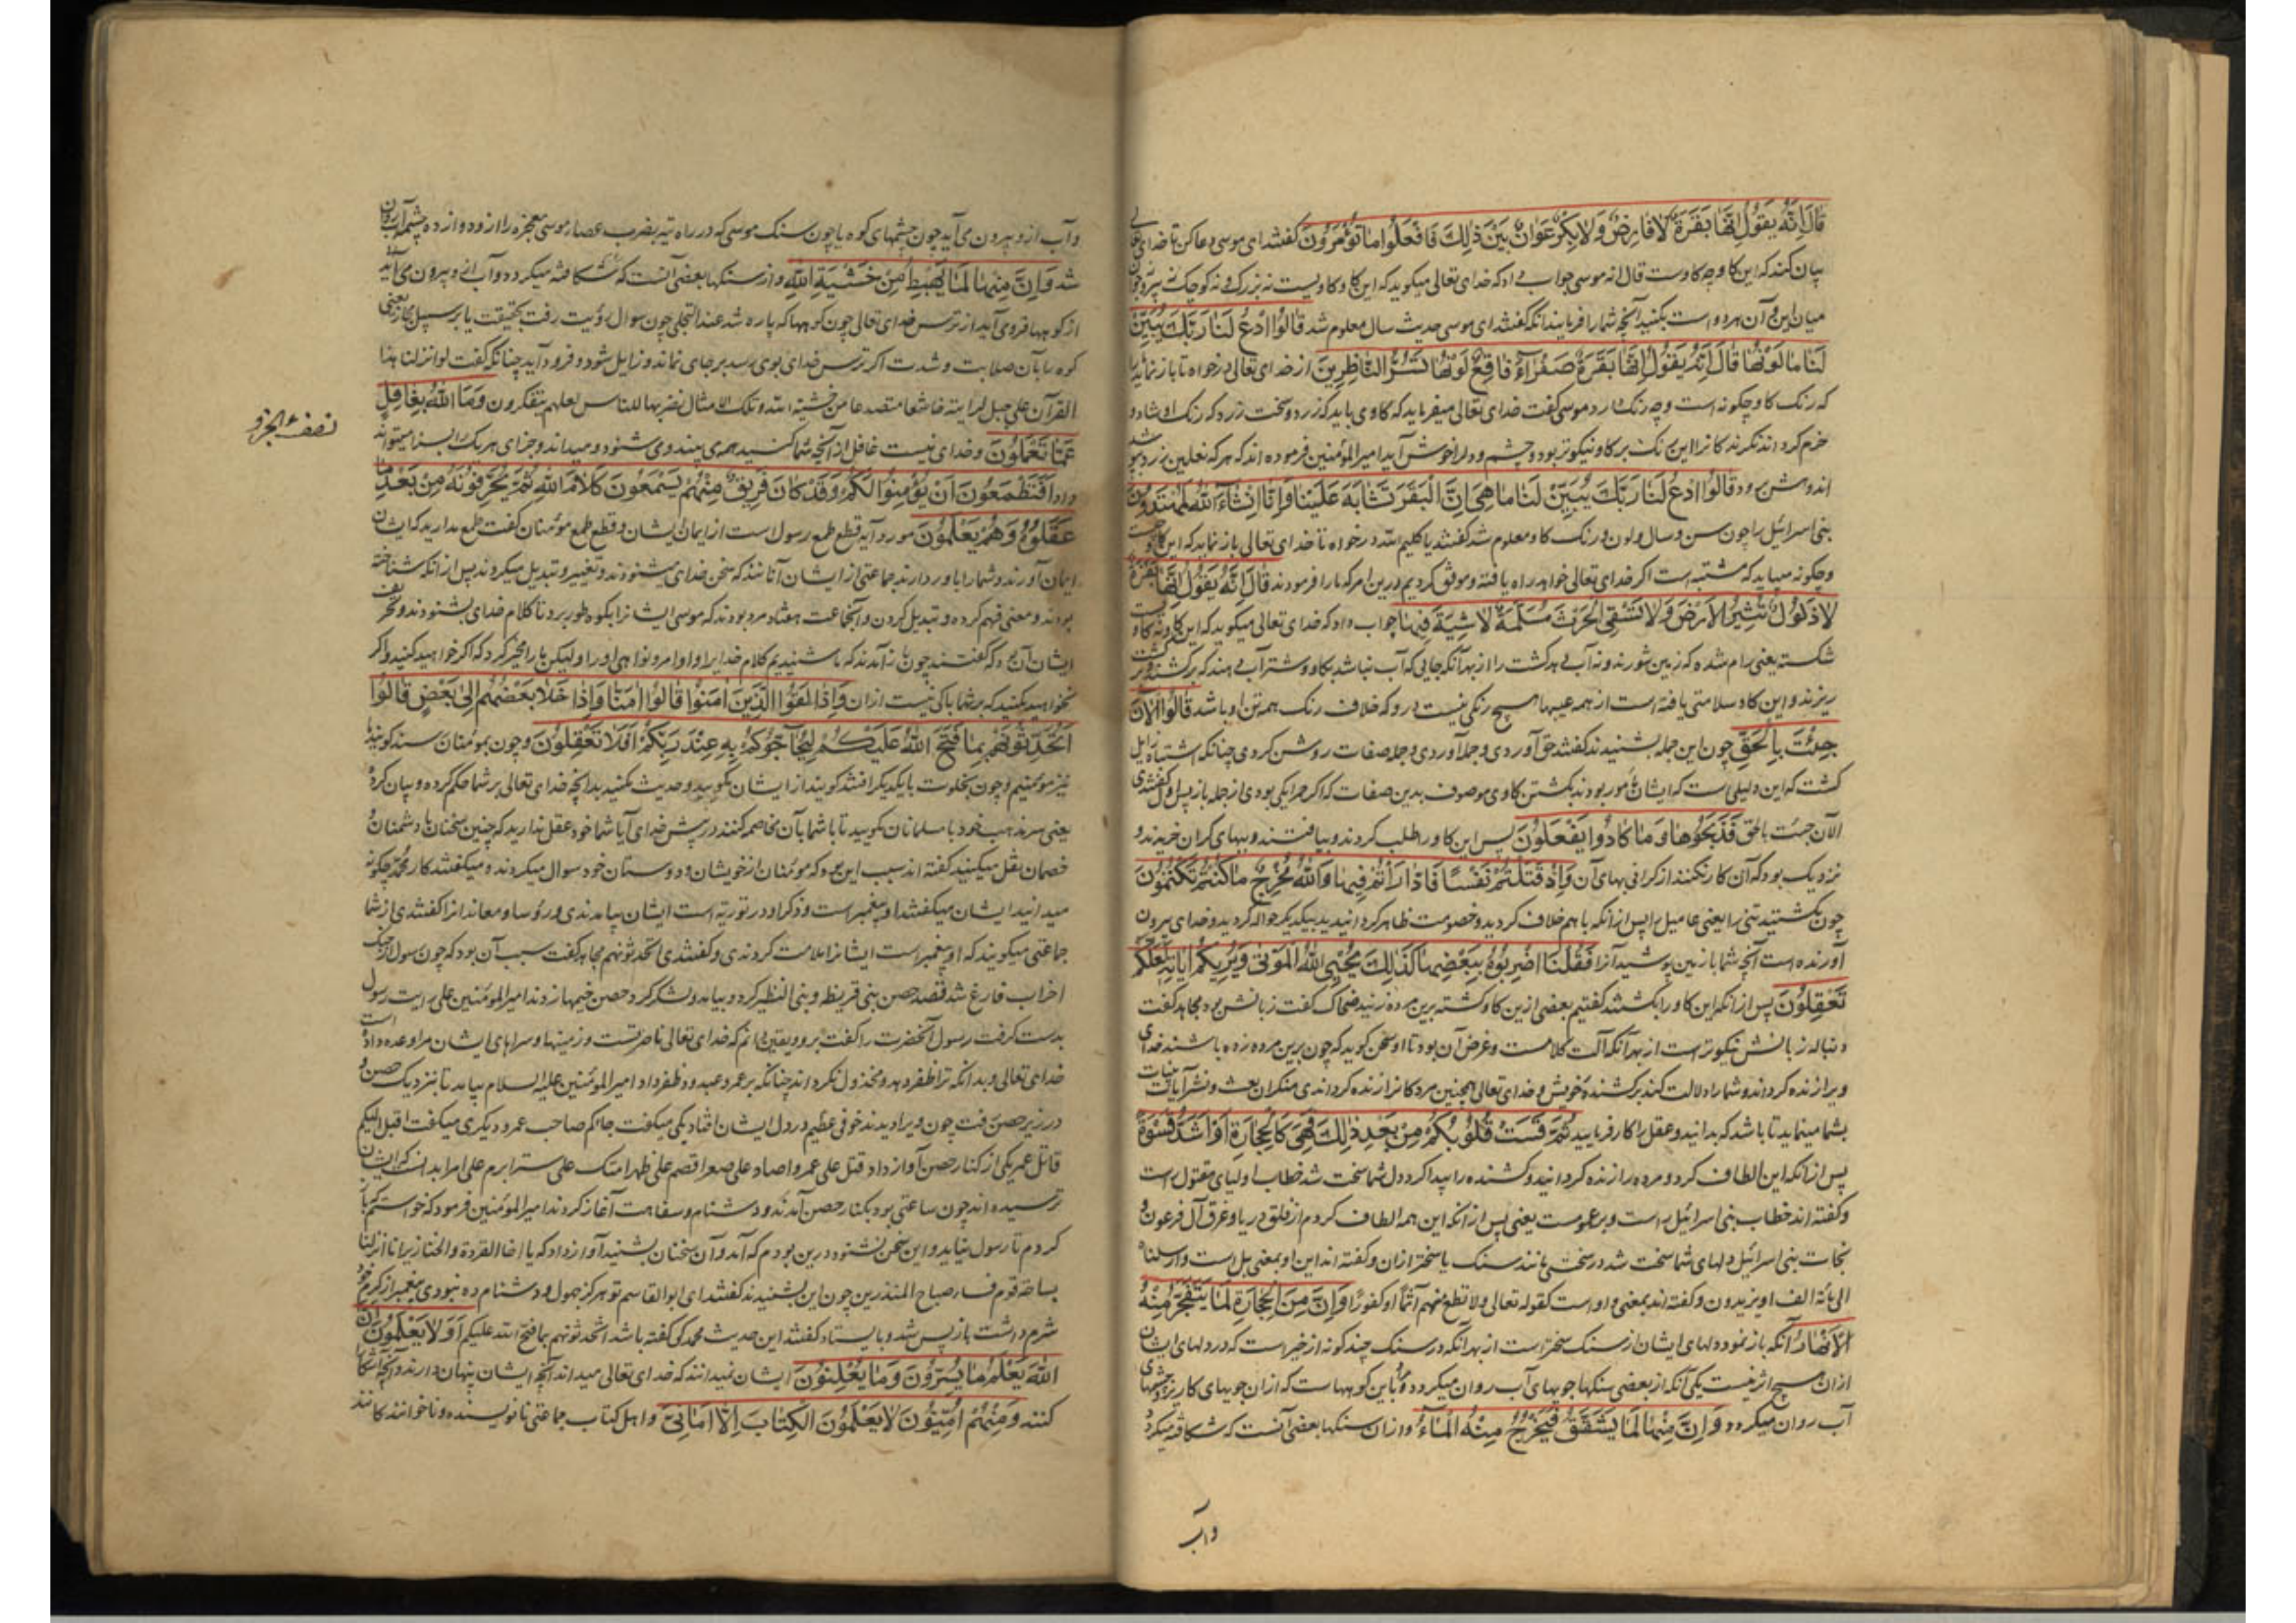 قَالَ اِنَّهُ یَقُولُ اِنَّهَا بَقَرَةٌ لَا فَارِضٌ وَلَا بِکْرٌ عَوَانٌ بَیْنَ ذٰلِكَ فَافْعَلُوا مَا تُؤْمَرُونَ کفتند ای موسی دعا کن تا خدای
بیان کند که این کاو چه کاوست قال انه موسی جواب داد که خدای تعالی میکوید که این کاو کاویست نه بزرك و نه کوچك نه پیر و
میان این و آن هر دو است بکنید آنچه شما را فرمایند آنکه کفتند ای موسی حدیث سال معلوم شد قَالُوا ادْعُ لَنَا رَبَّكَ یُبَیِّنْ
لَنَا مَا لَوْنُهَا قَالَ اِنَّهُ یَقُولُ اِنَّهَا بَقَرَةٌ صَفْرَاءُ فَاقِعٌ لَوْنُهَا تَسُرُّ النَّاظِرِینَ از خدای تعالی درخواه تا باز نماید
که رنك کاو چکونه است و چه رنك دارد موسی کفت خدای تعالی میفرماید که کاوی باید که زرد و سخت زرد که رنك او شاد و
خرم کرداند نکرندکانرا این رنك بر کاو نیکوتر بود و چشم و دلرا خوش آید امیر المؤمنین فرموده اند که هر که نعلین زرد
اندوهش برود قَالُوا ادْعُ لَنَا رَبَّكَ یُبَیِّنْ لَنَا مَا هِیَ اِنَّ الْبَقَرَ تَشَابَهَ عَلَیْنَا وَاِنَّا اِنْشَاءَ اللهُ لَمُهْتَدُونَ
بنی اسرائیل را چون سن و سال و لون و رنك کاو معلوم شد کفتند یا کلیم الله درخواه تا خدای تعالی باز نماید که این کاو
و چکونه میباید که مشتبه است اکر خدای تعالی خواهد راه یافته و موثق کردیم درین امر که ما را فرمودند قَالَ اِنَّهُ یَقُولُ اِنَّهَا بَقَرَةٌ
لَا ذَلُولٌ تُثِیرُ الْاَرْضَ وَلَا تَسْقِی الْحَرْثَ مُسَلَّمَةٌ لَا شِیَةَ فِیهَا جواب داد که خدای تعالی میکوید که این کاو نه کاو
شکسته یعنی رام شده که زمین شورند و نه آب دهد کشت را از بهر آنکه جایی که آب نباشد بکاو و شتر آب دهند که بر کشند و بر
ریزند و این کاو سلامتی یافته است از همه عیبها هیچ رنکی نیست در و که خلاف رنك همه تن او باشد قَالُوا الْاٰنَ
جِئْتَ بِالْحَقِّ چون این جمله بشنیدند کفتند حق آوردی و جمله صفات روشن کردی چنانکه اشتباه زایل
کشت که این دلیلی است که ایشان مامور بودند بکشتن کاوی موصوف بدین صفات که اکر
الآن جئت بالحق فَذَبَحُوهَا وَمَا کَادُوا یَفْعَلُونَ پس این کاو را طلب کردند و بیافتند و ببهای کران خریدند و
نزدیك بود که آن کار نکنند از کرانی بهای آن وَاِذْ قَتَلْتُمْ نَفْسًا فَادَّارَأْتُمْ فِیهَا وَاللهُ مُخْرِجٌ مَا کُنْتُمْ تَکْتُمُونَ
چون بکشتید تنی را یعنی عامیل را پس از آنکه باهم خلاف کردید و خصومت ظاهر کردانیدید بیکدیکر حواله کردید و خدای بیرون
آورنده است آنچه شما باز می پوشید آنرا فَقُلْنَا اضْرِبُوهُ بِبَعْضِهَا کَذٰلِكَ یُحْیِی اللهُ الْمَوْتٰی وَیُرِیکُمْ اٰیَاتِهِ لَعَلَّکُمْ
تَعْقِلُونَ پس از آنکه این کاو را بکشتند کفتیم بعضی ازین کاو کشته برین مرده زنید ضحاك کفت زبانش بود مجاهد کفت
دنباله زبانش نیکوتر است از بهر آنکه آلت کلامست و غرض آن بود تا او سخن کوید که چون برین مرده زده باشند خدای
ویرا زنده کرداند و شما را دلالت کند بر کشنده خویش و خدای تعالی همچنین مردکانرا زنده کرداند ای منکران بعث و نشر آیات
بشما مینماید تا باشد که بدانید و عقل را کار فرمایید ثُمَّ قَسَتْ قُلُوبُکُمْ مِنْ بَعْدِ ذٰلِكَ فَهِیَ کَالْحِجَارَةِ اَوْ اَشَدُّ قَسْوَةً
پس از آنکه این الطاف کرد و مرده را زنده کردانید و کشنده را پیدا کرد دل شما سخت شد خطاب اولیای مقتول است
و کفته اند خطاب بنی اسرائیل است و بر عمومست یعنی پس از آنکه این همه الطاف کردم از فلق دریا و غرق آل فرعون و
نجات بنی اسرائیل دلهای شما سخت شد در سختی مانند سنك یا سختر از ان و کفته اند این او بمعنی بل است وارسلناه
الی مائة الف او یزیدون و کفته اند بمعنی واو است کقوله تعالی ولا تطع منهم آثما او کفورا وَاِنَّ مِنَ الْحِجَارَةِ لَمَا یَتَفَجَّرُ مِنْهُ
الْاَنْهَارُ آنکه باز نمود دلهای ایشان از سنك سختر است از بهر آنکه در سنك چند کونه از خیر است که در دلهای ایشان
از ان هیچ اثر نیست یکی آنکه از بعضی سنکها جویهای آب روان میکردد و آن کوههاست که از ان جویهای کاریز و چشمهای
آب روان میکردد وَاِنَّ مِنْهَا لَمَا یَشَّقَّقُ فَیَخْرُجُ مِنْهُ الْمَاءُ و از ان سنکها بعضی آنست که شکافته میکردد
و آب
و آب از و بیرون می آید چون چشمهای کوه یا چون سنك موسی که در راه تیه بضرب عصا موسی معجزه را از و دوازده چشمه آب روان
شد وَاِنَّ مِنْهَا لَمَا یَهْبِطُ مِنْ خَشْیَةِ اللهِ و از سنکها بعضی آنست که شکافته میکردد و آب از و بیرون می آید
از کوهها فرو می آید از ترس خدای تعالی چون کوهها که پاره شد عند التجلی چون سوال رؤیت رفت بحقیقت یا بر سبیل مجاز یعنی
کوه با آن صلابت و شدت اکر ترس خدای بوی رسد بر جای نماند و زایل شود و فرود آید چنانکه کفت لو انزلنا هذا
القرآن علی جبل لرایته خاشعا متصدعا من خشیة الله و تلك الامثال نضربها للناس لعلهم یتفکرون وَمَا اللهُ بِغَافِلٍ
نصف الجزو
عَمَّا تَعْمَلُونَ و خدای نیست غافل از آنچه شما کنید همه می بیند و می شنود و میداند و جزای هر یك
داد اَفَتَطْمَعُونَ اَنْ یُؤْمِنُوا لَکُمْ وَقَدْ کَانَ فَرِیقٌ مِنْهُمْ یَسْمَعُونَ کَلَامَ اللهِ ثُمَّ یُحَرِّفُونَهُ مِنْ بَعْدِ مَا
عَقَلُوهُ وَهُمْ یَعْلَمُونَ مورد آیه قطع طمع رسول است از ایمان ایشان و قطع طمع مؤمنان کفت طمع مدارید که ایشان
ایمان آورند و شما را باور دارند جماعتی از ایشان آنانند که سخن خدای میشنودند و تغییر و تبدیل میکردند پس از آنکه شناخته
بودند و معنی فهم کرده و تبدیل کردن و آنجماعت هفتاد مرد بودند که موسی ایشانرا بکوه طور برد تا کلام خدای بشنودند و تحریف
ایشان آن بود که کفتند چون باز آمدند که ما شنیدیم کلام خدایرا و اوامر و نواهی او را ولیکن ما را مخیر کرد که اکر خواهید کنید و اکر
نخواهید مکنید که بر شما باکی نیست از ان وَاِذَا لَقُوا الَّذِینَ اٰمَنُوا قَالُوا اٰمَنَّا وَاِذَا خَلَا بَعْضُهُمْ اِلٰی بَعْضٍ قَالُوا
اَتُحَدِّثُونَهُمْ بِمَا فَتَحَ اللهُ عَلَیْکُمْ لِیُحَاجُّوکُمْ بِهِ عِنْدَ رَبِّکُمْ اَفَلَا تَعْقِلُونَ و چون بمؤمنان رسند کویند ما
نیز مؤمنیم و چون بخلوت با یکدیکر افتند کویند از ایشان مکویید و حدیث مکنید بدانچه خدای تعالی بر شما حکم کرده و بیان کرده
یعنی سر مذهب خود با مسلمانان مکویید تا با شما بآن مخاصمه کنند در پیش خدای آیا شما خود عقل ندارید که چنین سخنان با دشمنان و
خصمان نقل میکنید کفته اند سبب این بود که مؤمنان از خویشان و دوستان خود سوال میکردند و میکفتند کار محمد چکونه
میدانید ایشان میکفتند او پیغمبر است و ذکر او در توریة است ایشان بیامدندی و رؤسا و معاندانرا کفتندی از شما
جماعتی میکویند که او پیغمبر است ایشانرا ملامت کردندی و کفتندی اتحدثونهم مجاهد کفت سبب آن بود که چون رسول از جنك
احزاب فارغ شد قصد حصن بنی قریظه و بنی النظیر کرد و بیامد و لشکر کرد حصن خیمها زدند امیر المؤمنین علی رایت رسول
بدست کرفت رسول آنحضرت را کفت برو و یقین دانم که خدای تعالی ناصر تست و زمینها و سراهای ایشان مرا وعده داده است
خدای تعالی و بدانکه ترا ظفر دهد و مخذول نکرداند چنانکه بر عمرو عبدود ظفر داد امیر المؤمنین علیه السلام بیامد تا بنزدیك حصن و
در زیر حصن رفت چون ویرا دیدند خوفی عظیم در دل ایشان افتاد یکی میکفت جاءکم صاحب عمرو دیکری میکفت اقبل الیکم
قاتل عمر یکی از کنار حصن آواز داد قتل علی عمروا صاد علی صقرا قصم علی ظهرا هتك علی سترا ابرم علی امرا بدانست که ایشان
ترسیده اند چون ساعتی بود بکنار حصن آمدند و دشنام و سفاهت آغاز کردند امیر المؤمنین فرمود که خواستم که باز
کردم تا رسول نیاید و این سخن نشنود درین بودم که آمد و آن سخنان بشنید آواز داد که یا اخا القردة والخنازیر انا انزلنا
بساحة قوم فساء صباح المنذرین چون این بشنیدند کفتند ای ابو القاسم تو هرکز جهول و دشنام ده نبودی پیغمبر از کرم خود
شرم داشت باز پس شد و بایستاد کفتند این حدیث محمد که کفته باشد اتحدثونهم بما فتح الله علیکم اَوَلَا یَعْلَمُونَ اَنَّ
اللهَ یَعْلَمُ مَا یُسِرُّونَ وَمَا یُعْلِنُونَ ایشان نمیدانند که خدای تعالی میداند آنچه ایشان پنهان دارند و آنچه آشکارا
کنند وَمِنْهُمْ اُمِّیُّونَ لَا یَعْلَمُونَ الْکِتَابَ اِلَّا اَمَانِیَّ و اهل کتاب جماعتی نانویسنده و ناخوانده کانند